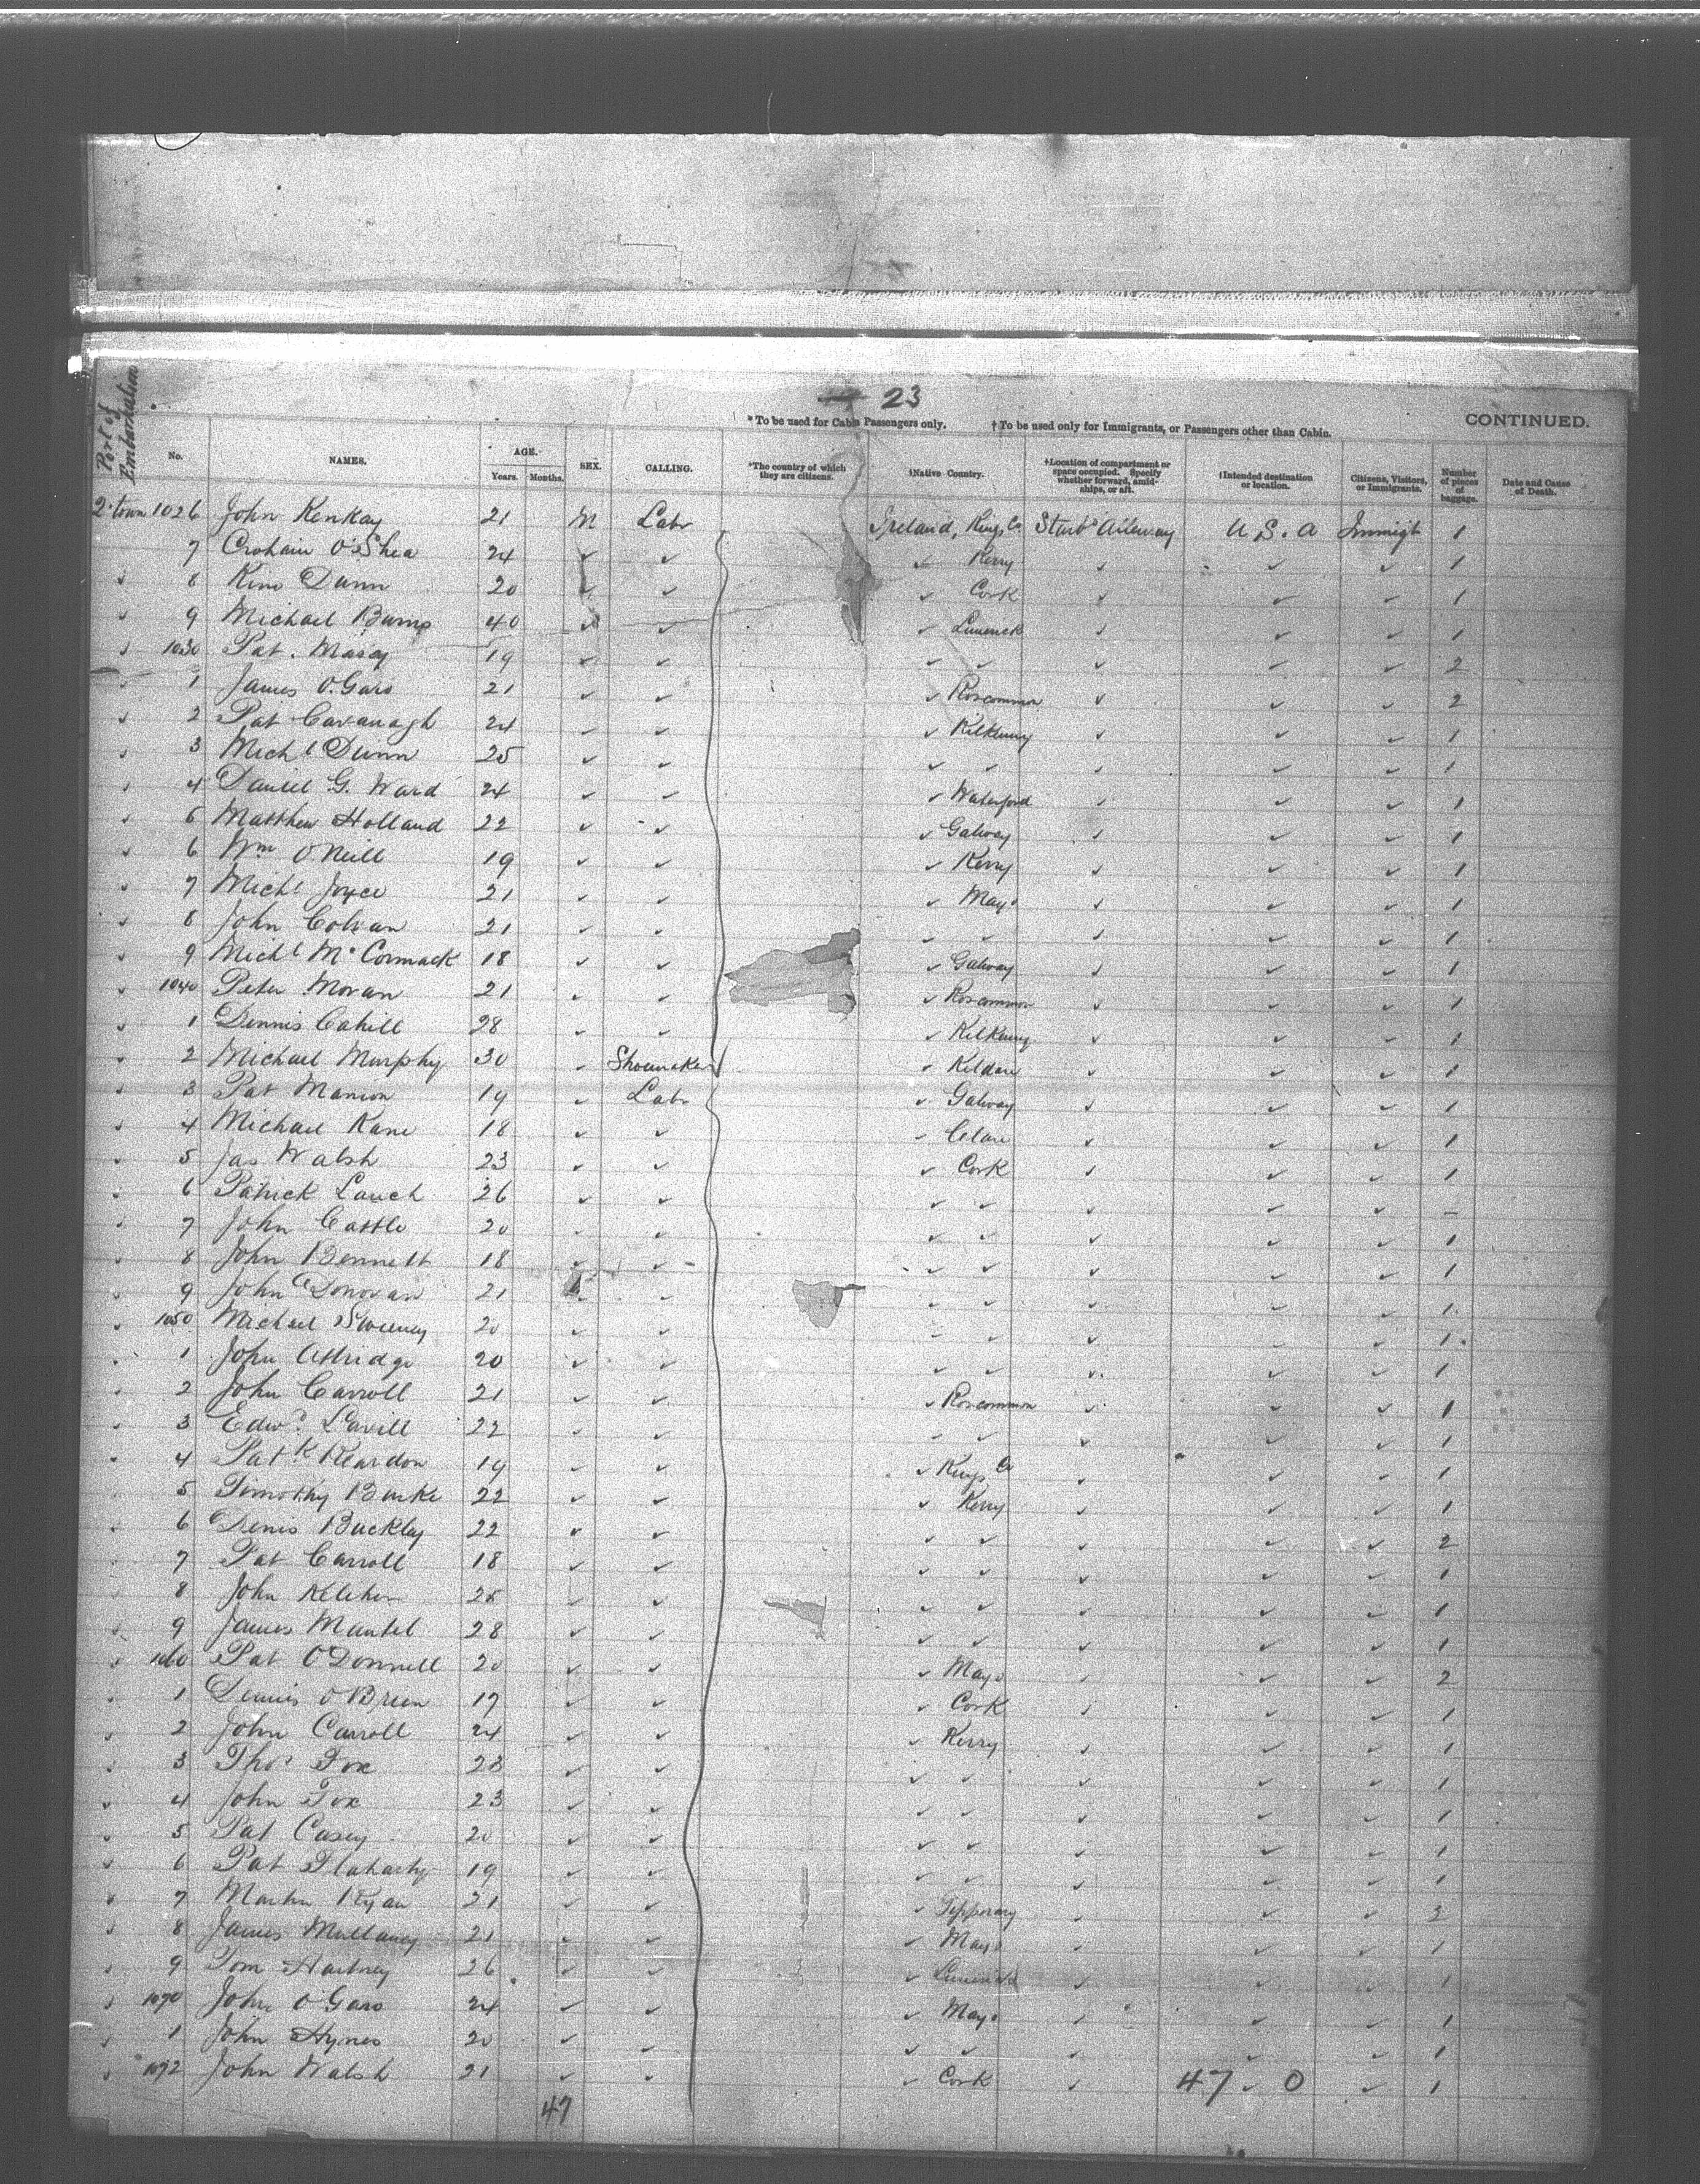 23
*To be used for Cabin Passengers only. †To be used only for Immigrants, or Passengers other than Cabin. CONTINUED.
Port of Embarkation No. NAMES. AGE. Years. Months. SEX. CALLING. *The country of which they are citizens. †Native Country. †Location of compartment or space occupied. Specify whether forward, amidships, or aft. †Intended destination or location. Citizens, Visitors, or Immigrants. Number of pieces of baggage. Date and Cause of Death.
2.town 1026 John Kenkay 21 M Labr Ireland, Kings Co Starbd Alleway U.S.A Immigt 1
7 Crohain O'Shea 24 ✓ ✓ ✓ Kerry ✓ ✓ ✓ 1
✓ 8 Dunn 20 ✓ ✓ ✓ Cork ✓ ✓ ✓ 1
✓ 9 Michael Burns 40 ✓ ✓ ✓ Limerick ✓ ✓ ✓ 1
✓ 1030 Pat. Masey 19 ✓ ✓ ✓ ✓ ✓ ✓ ✓ 2
✓ 1 James O.Gara 21 ✓ ✓ ✓ Roscommon ✓ ✓ ✓ 2
✓ 2 Pat Cavanagh 24 ✓ ✓ ✓ Kilkenny ✓ ✓ ✓ 1
✓ 3 Michl Dunn 25 ✓ ✓ ✓ ✓ ✓ ✓ ✓ 1
✓ 4 Daniel G. Ward 24 ✓ ✓ ✓ Waterford ✓ ✓ ✓ 1
✓ 5 Matthew Holland 22 ✓ ✓ ✓ Galway ✓ ✓ ✓ 1
✓ 6 Wm O'Neill 19 ✓ ✓ ✓ Kerry ✓ ✓ ✓ 1
✓ 7 Michl Joyce 21 ✓ ✓ ✓ Mayo ✓ ✓ ✓ 1
✓ 8 John Colvan 21 ✓ ✓ ✓ ✓ ✓ ✓ ✓ 1
✓ 9 Michl McCormack 18 ✓ ✓ ✓ Galway ✓ ✓ ✓ 1
✓ 1040 Peter Moran 21 ✓ ✓ ✓ Roscommon ✓ ✓ ✓ 1
✓ 1 Dennis Cahill 28 ✓ ✓ ✓ Kilkenny ✓ ✓ ✓ 1
✓ 2 Michael Murphy 30 ✓ Shoemaker ✓ Kildare ✓ ✓ ✓ 1
✓ 3 Pat Manion 19 ✓ Labr ✓ Galway ✓ ✓ ✓ 1
✓ 4 Michael Kane 18 ✓ ✓ ✓ Clare ✓ ✓ ✓ 1
✓ 5 Jas Walsh 23 ✓ ✓ ✓ Cork ✓ ✓ ✓ 1
✓ 6 Patrick Lauch 26 ✓ ✓ ✓ ✓ ✓ ✓ ✓ –
✓ 7 John Castle 20 ✓ ✓ ✓ ✓ ✓ ✓ ✓ 1
✓ 8 John Bennett 18 ✓ ✓ ✓ ✓ ✓ ✓ ✓ 1
✓ 9 John Donovan 21 ✓ ✓ ✓ ✓ ✓ ✓ ✓ 1
✓ 1050 Michael Sweeney 20 ✓ ✓ ✓ ✓ ✓ ✓ ✓ 1
✓ 1 John Attridge 20 ✓ ✓ ✓ ✓ ✓ ✓ ✓ 1
✓ 2 John Carroll 21 ✓ ✓ ✓ Roscommon ✓ ✓ ✓ 1
✓ 3 Edwd Lavill 22 ✓ ✓ ✓ ✓ ✓ ✓ ✓ 1
✓ 4 Patk Reardon 19 ✓ ✓ ✓ Kings Co ✓ ✓ ✓ 1
✓ 5 Timothy Burke 22 ✓ ✓ ✓ Kerry ✓ ✓ ✓ 1
✓ 6 Denis Buckley 22 ✓ ✓ ✓ ✓ ✓ ✓ ✓ 2
✓ 7 Pat Carroll 18 ✓ ✓ ✓ ✓ ✓ ✓ ✓ 1
✓ 8 John Keleher 25 ✓ ✓ ✓ ✓ ✓ ✓ ✓ 1
✓ 9 James Mantel 28 ✓ ✓ ✓ ✓ ✓ ✓ ✓ 1
✓ 1060 Pat O'Donnell 20 ✓ ✓ ✓ Mayo ✓ ✓ ✓ 2
✓ 1 Dennis O'Brien 17 ✓ ✓ ✓ Cork ✓ ✓ ✓ 1
✓ 2 John Carroll 24 ✓ ✓ ✓ Kerry ✓ ✓ ✓ 1
✓ 3 Thos Fox 23 ✓ ✓ ✓ ✓ ✓ ✓ ✓ 1
✓ 4 John Fox 23 ✓ ✓ ✓ ✓ ✓ ✓ ✓ 1
✓ 5 Pat Casey 20 ✓ ✓ ✓ ✓ ✓ ✓ ✓ 1
✓ 6 Pat Flaharty 19 ✓ ✓ ✓ ✓ ✓ ✓ ✓ 1
✓ 7 Martin Ryan 21 ✓ ✓ ✓ Tipporary ✓ ✓ ✓ 3
✓ 8 James Mullaney 21 ✓ ✓ ✓ Mayo ✓ ✓ ✓ 1
✓ 9 Tom Hartney 26 ✓ ✓ ✓ Limerick ✓ ✓ ✓ 1
✓ 1070 John O'Gara 24 ✓ ✓ ✓ Mayo ✓ ✓ ✓ 1
✓ 1 John Hynes 20 ✓ ✓ ✓ ✓ ✓ ✓ ✓ 1
✓ 1072 John Walsh 21 ✓ ✓ ✓ Cork ✓ 47 ✓ 0 ✓ 1
47